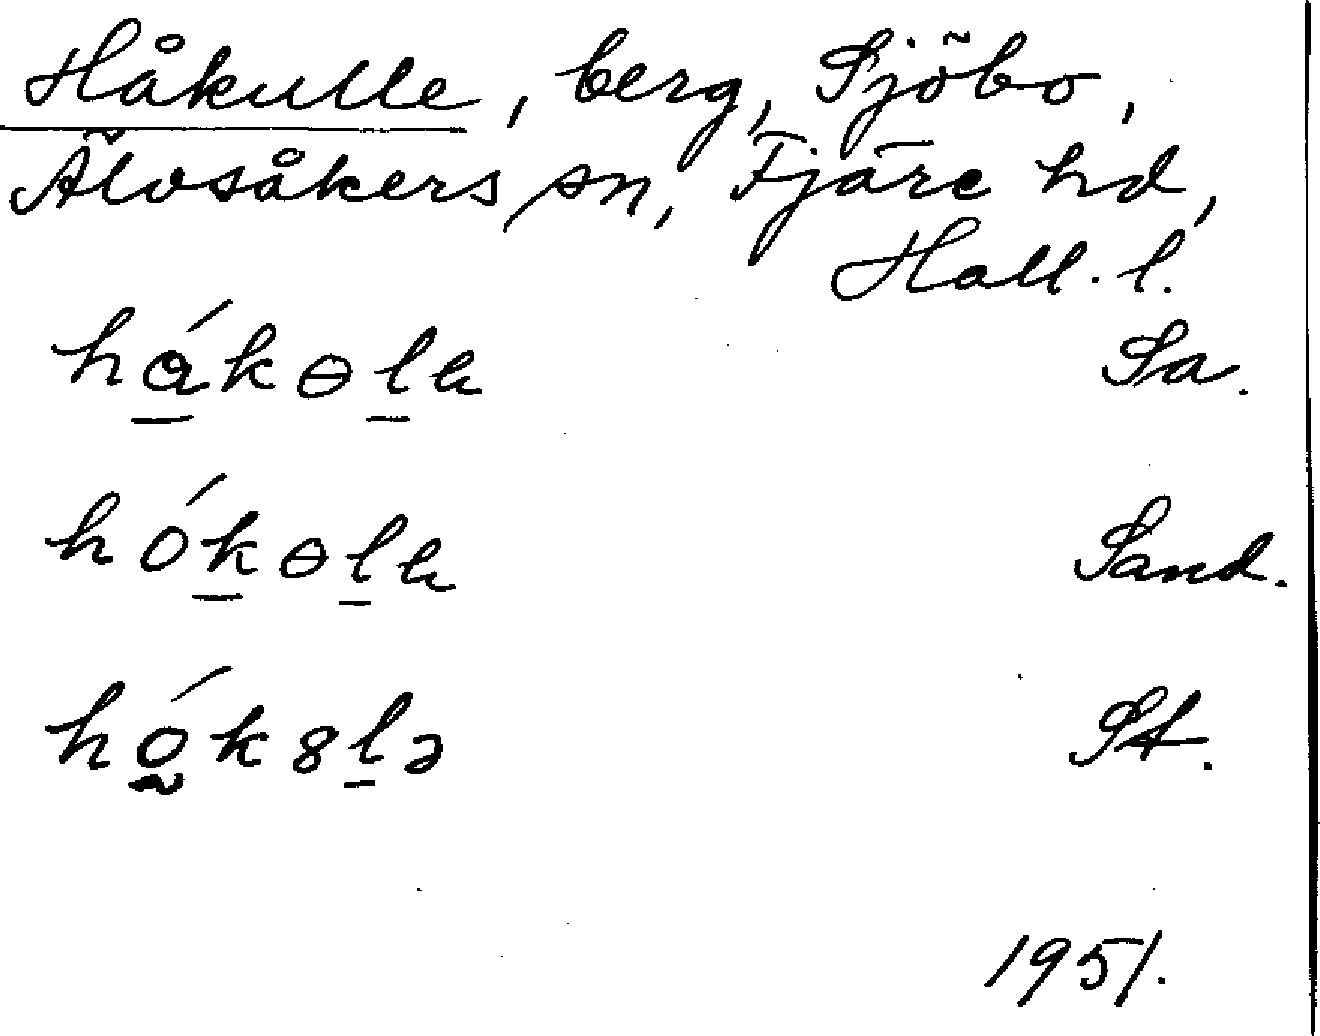 Håkulle, berg, Sjöbo,
Älvsåkers sn, Fjäre hd,
Hall. l.
hákɵlɐ Sa.
hókɵlɐ Sand.
hók8lə St.
1951.